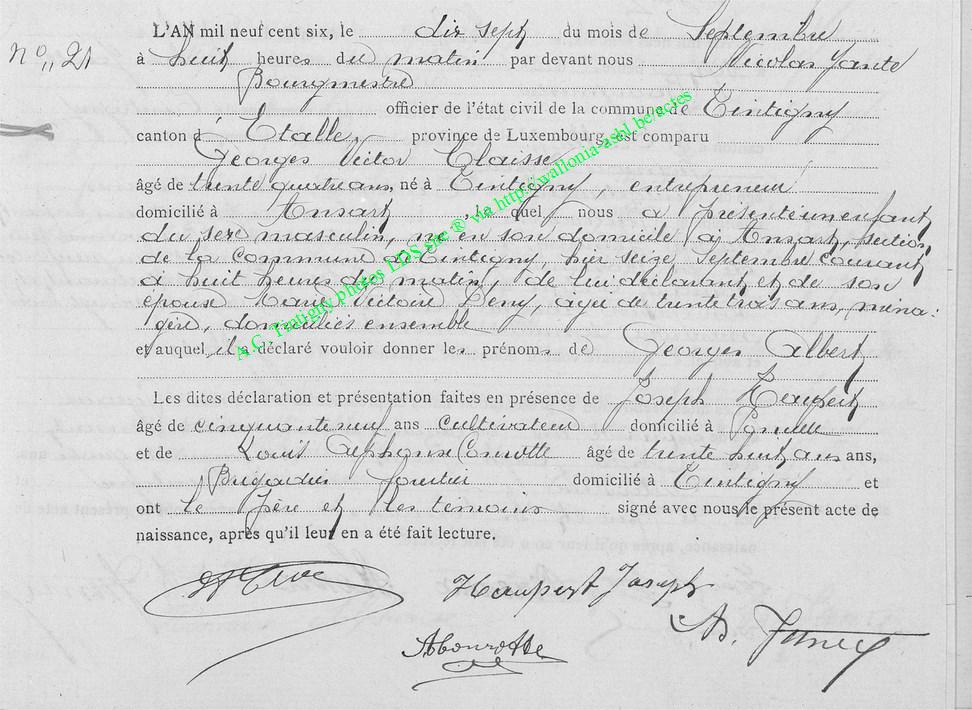 L'AN mil neuf cent six, le dix sept du mois de Septembre
No 21
à huit heures du matin par devant nous Nicolas
Bourgmestre
officier de l'état civil de la commune de Tintigny
canton d' Etalle, province de Luxembourg, est comparu
Georges Victor Claisse
âgé de trente quatre ans, né à Tintigny, entrepreneur
domicilié à Ansart, le quel nous a présenté un enfant
du sexe masculin, né en son domicile à Ansart, section
de la commune de Tintigny, hier seize Septembre courant
à huit heures du matin, de lui déclarant et de son
épouse Marie Victoire, agée de trente trois ans, ména-
gère, domiciliés ensemble
et auquel il a déclaré vouloir donner les prénoms de Georges Albert
Les dites déclaration et présentation faites en présence de Joseph Haupert
âgé de cinquante neuf ans cultivateur domicilié à
et de Louis Alphonse âgé de trente huit ans ans,
Brigadier forestier domicilié à Tintigny et
ont le père et les témoins signé avec nous le présent acte de
naissance, après qu'il leur en a été fait lecture.
Haupert Joseph
A.C. Tintigny photos LDS site ® via http://wallonia-asbl.be/actes